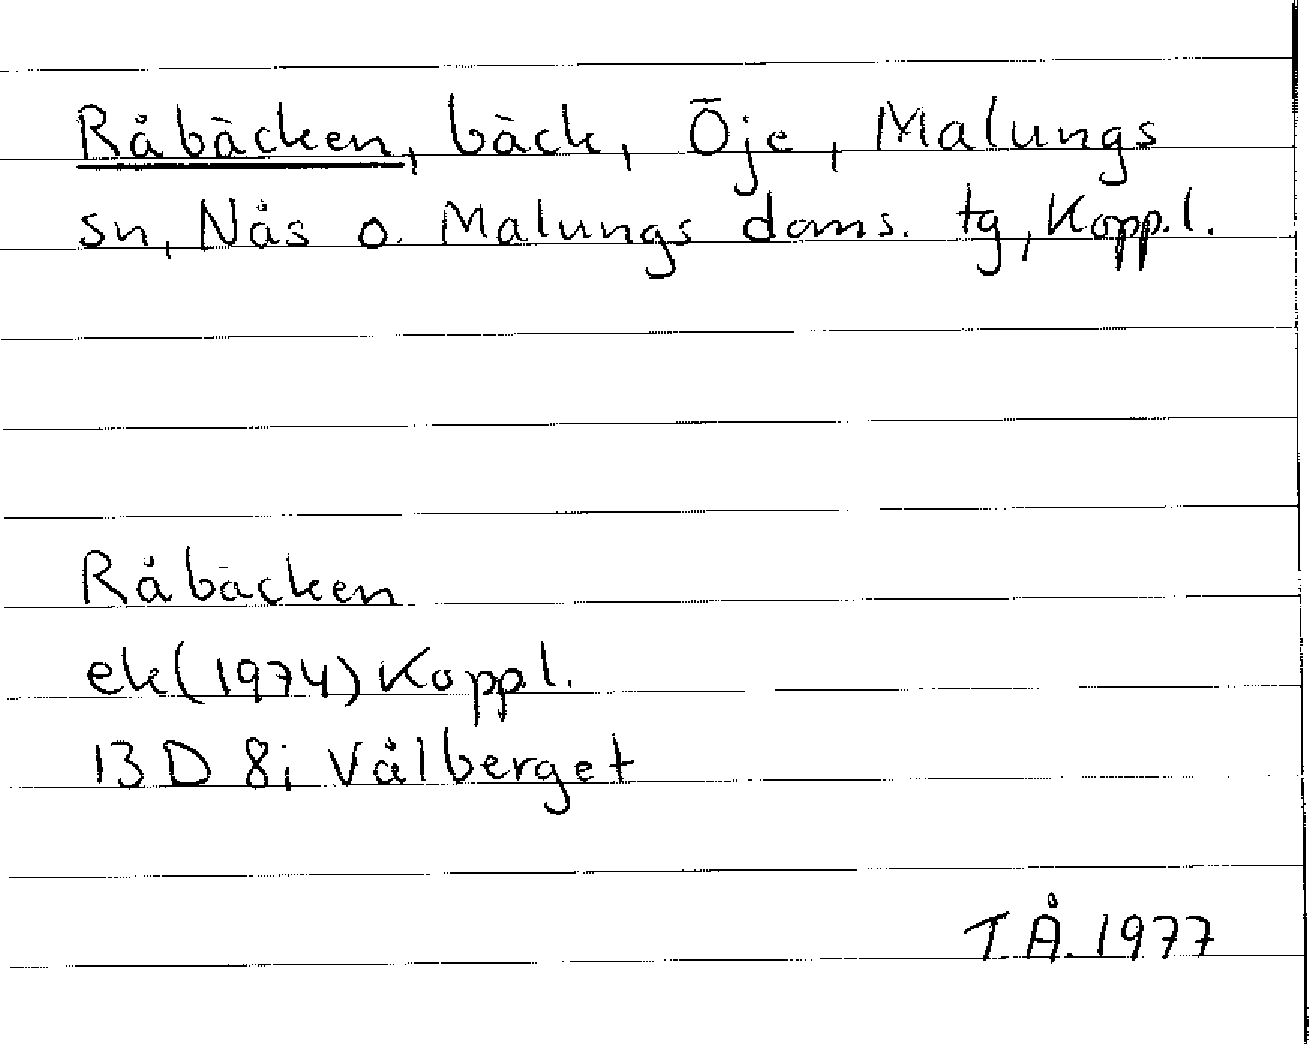 Råbäcken, bäck, Öje, Malungs
sn, Nås o. Malungs doms. tg, Kopp.l.
Råbäcken
ek(1974) Koppl.
13 D 8i Vålberget
T.Å. 1977